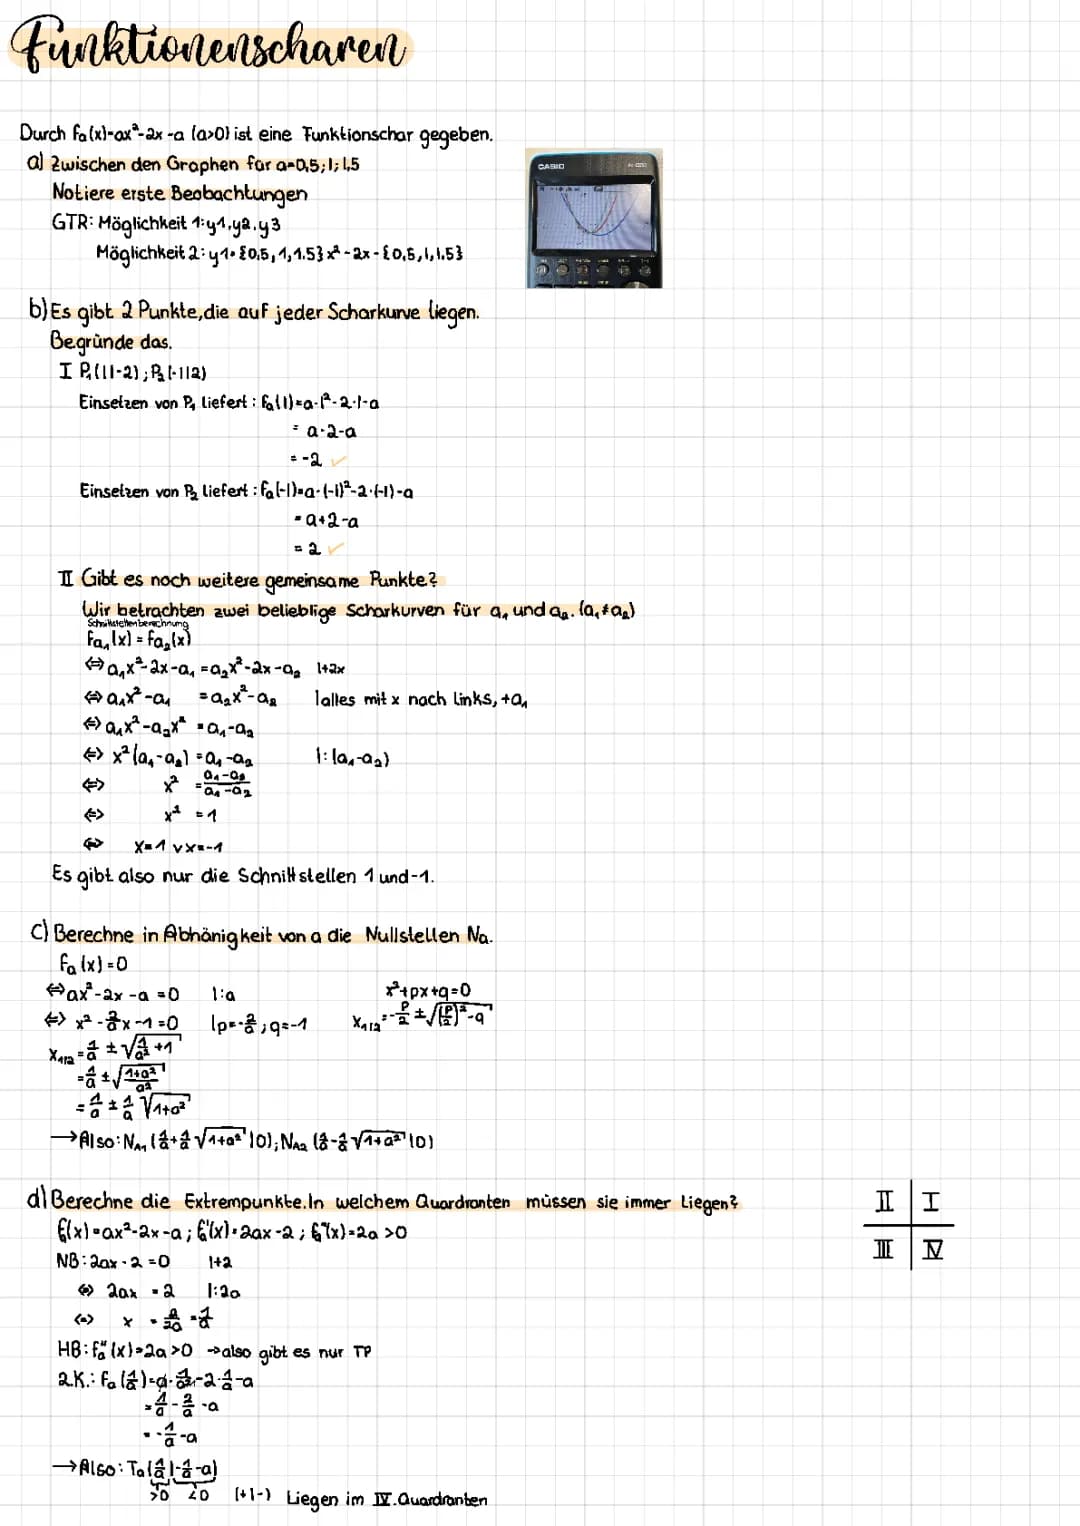 Funktionenscharen
Durch fa(x)=ax²-2x-a (a>0) ist eine Funktionschar gegeben.
a) Zwischen den Graphen für a=0,5; 1; 1,5
Notiere erste Beobachtungen
GTR: Möglichkeit 1: y1, y2, y3
Möglichkeit 2: y1= {0,5, 1, 1.5} x² - 2x - {0,5, 1, 1.5}
CASIO
b) Es gibt 2 Punkte, die auf jeder Scharkurve liegen.
Begründe das.
I P₁(1|-2); P₂(-1|2)
Einsetzen von P₁ liefert: fa(1)=a·1²-2·1-a
= a-2-a
= -2 ✓
Einsetzen von P₂ liefert: fa(-1)=a·(-1)²-2·(-1)-a
= a+2-a
= 2 ✓
II Gibt es noch weitere gemeinsame Punkte?
Wir betrachten zwei belieblige Scharkurven für a₁ und a₂. (a₁≠a₂)
Schnittstellenberechnung
fa₁(x) = fa₂(x)
⇔ a₁x²-2x-a₁ = a₂x²-2x-a₂ |+2x
⇔ a₁x²-a₁ = a₂x²-a₂ |alles mit x nach links, +a₁
⇔ a₁x²-a₂x² = a₁-a₂
⇔ x²(a₁-a₂) = a₁-a₂ |:(a₁-a₂)
⇔ x² = (a₁-a₂)/(a₁-a₂)
⇔ x² = 1
⇔ x=1 ∨ x=-1
Es gibt also nur die Schnittstellen 1 und -1.
c) Berechne in Abhänigkeit von a die Nullstellen Na.
fa(x)=0
⇔ ax²-2x-a=0 |:a x²+px+q=0
⇔ x²-2/a x-1=0 |p=-2/a; q=-1 x₁|₂=-p/2 ± √((p/2)²-q)
x₁|₂ = 1/a ± √(1/a²+1)
= 1/a ± √((1+a²)/a²)
= 1/a ± 1/a √(1+a²)
→ Also: NA₁ (1/a+1/a √(1+a²) |0); NA₂ (1/a-1/a √(1+a²) |0)
d) Berechne die Extrempunkte. In welchem Quardranten müssen sie immer Liegen?
II I
III IV
fa(x)=ax²-2x-a; fa'(x)=2ax-2; fa''(x)=2a >0
NB: 2ax-2=0 |+2
⇔ 2ax = 2 |:2a
⇔ x = 2/2a = 1/a
HB: fa''(x)=2a>0 → also gibt es nur TP
2.K.: fa(1/a)=a·1/a²-2·1/a-a
= 1/a - 2/a - a
= -1/a - a
→ Also: Ta(1/a|-1/a-a)
>0 <0 (+|-) Liegen im IV. Quardranten